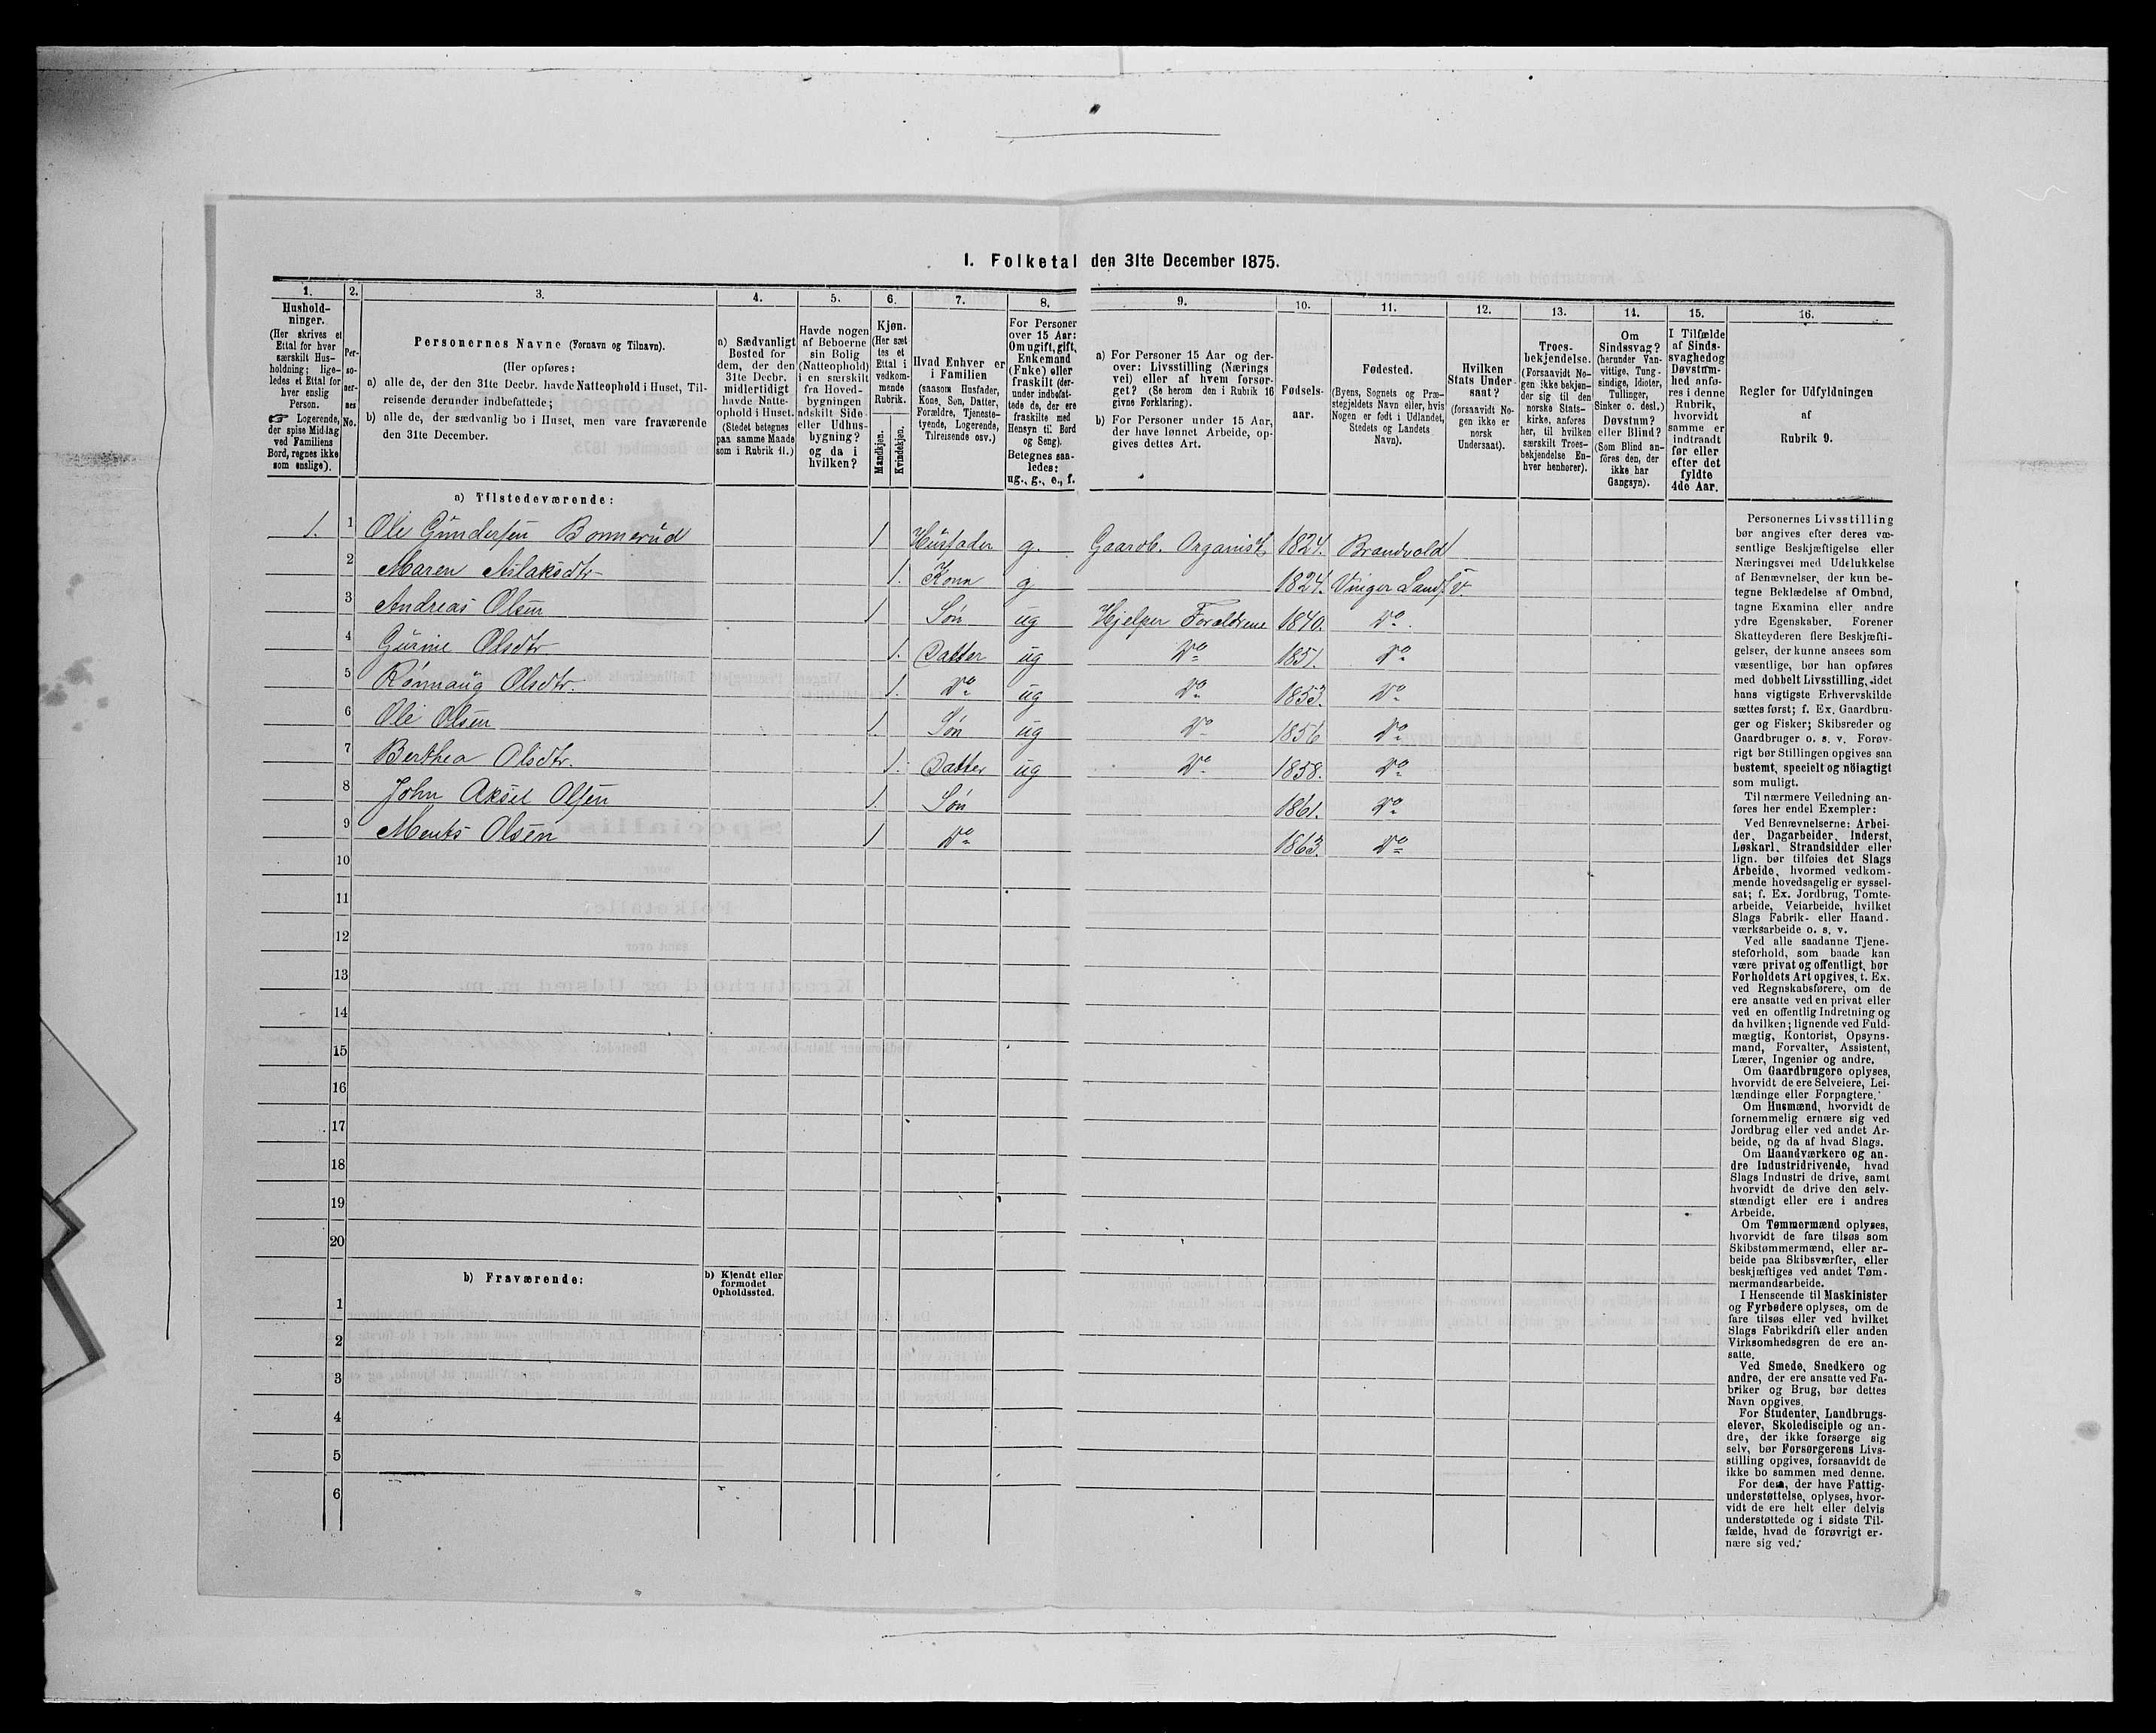 I. Folketal den 31te December 1875.
1. 2. 3. 4. 5. 6. 7. 8. 9. 10. 11. 12. 13. 14. 15. 16.
Hushold-
ninger.
(Her skrives et
Ettal for hver
særskilt Hus-
holdning; lige-
ledes et Ettal for
hver enslig
Person.
☞ Logerende,
der spise Middag
ved Familiens
Bord, regnes ikke
som enslige).
Per-
so-
ner-
nes
No.
Personernes Navne (Fornavn og Tilnavn).
(Her opføres:
a) alle de, der den 31te Decbr. havde Natteophold i Huset, Til-
reisende derunder indbefattede;
b) alle de, der sædvanlig bo i Huset, men vare fraværende
den 31te December.
a) Sædvanligt
Bosted for
dem, der den
31te Decbr.
midlertidigt
havde Natte-
ophold i Huset.
(Stedet betegnes
paa samme Maade
som i Rubrik 11.)
Havde nogen
af Beboerne
sin Bolig
(Natteophold)
i en særskilt
fra Hoved-
bygningen
adskilt Side-
eller Udhus-
bygning?
og da i
hvilken?
Kjøn.
(Her sæt
tes et
Ettal i
vedkom-
mende
Rubrik.
Mandkjøn.
Kvindekjøn.
Hvad Enhver er
i Familien
(saasom Husfader,
Kone, Søn, Datter,
Forældre, Tjeneste-
tyende, Logerende,
Tilreisende osv.)
For Personer
over 15 Aar:
Om ugift, gift,
Enkemand
(Enke) eller
fraskilt (der-
under indbefat-
tede de, der ere
fraskilte med
Hensyn til Bord
og Seng).
Betegnes saa-
ledes:
ug., g., e., f.
a) For Personer 15 Aar og der-
over: Livsstilling (Nærings
vei) eller af hvem forsør-
get? (Se herom den i Rubrik 16
givne Forklaring).
b) For Personer under 15 Aar,
der have lønnet Arbeide, op-
gives dettes Art.
Fødsels-
aar.
Fødested.
(Byens, Sognets og Præ-
stegjeldets Navn eller, hvis
Nogen er født i Udlandet,
Stedets og Landets
Navn).
Hvilken
Stats Under-
saat?
(forsaavidt No-
gen ikke er
norsk
Undersaat).
Troes-
bekjendelse.
(Forsaavidt No-
gen ikke bekjen-
der sig til den
norske Stats-
kirke, anføres
her, til hvilken
særskilt Troes-
bekjendelse En-
hver henhører).
Om
Sindssvag?
(herunder Van-
vittige, Tung-
sindige, Idioter,
Tullinger,
Sinker o. desl.)
Døvstum?
eller Blind?
(Som Blind an-
føres den, der
ikke har
Gangsyn).
I Tilfælde
af Sinds-
svaghed og
Døvstum-
hed anfø-
res i denne
Rubrik,
hvorvidt
samme er
indtraadt
før eller
efter det
fyldte
4de Aar.
Regler for Udfyldningen
af
Rubrik 9.
a) Tilstedeværende:
1. 1 Ole Gundersen Bonnerud 1 Husfader g. Gaardb. Organist 1824. Brandvold
2 Maren Aslaksdtr 1. Kone g 1824. Vinger Lands.
3 Andreas Olsen 1 Søn ug Hjelper Forældrene 1840. Do.
4 Gurine Olsdtr 1. Datter ug Do 1851. Do
5 Rønnaug Olsdtr. 1. Do ug Do 1853. Do
6 Ole Olsen 1. Søn ug Do 1856 Do
7 Berthea Olsdtr. 1. Datter ug Do 1858. Do
8 John Aksel Olsen 1. Søn 1861. Do
9 Ments Olsen 1 Do 1863. Do
10
11
12
13
14
15
16
17
18
19
20
b) Fraværende:
b) Kjendt eller
formodet
Opholdssted.
1
2
3
4
5
6
Personernes Livsstilling
bør angives efter deres væ-
sentlige Beskjæftigelse eller
Næringsvei med Udelukkelse
af Benævnelser, der kun be-
tegne Beklædelse af Ombud,
tagne Examina eller andre
ydre Egenskaber. Forener
Skatteyderen flere Beskjæfti-
gelser, der kunne ansees som
væsentlige, bør han opføres
med dobbelt Livsstilling, idet
hans vigtigste Erhvervskilde
sættes først; f. Ex. Gaardbru-
ger og Fisker; Skibsreder og
Gaardbruger o. s. v. Forøv-
rigt bør Stillingen opgives saa
bestemt, specielt og nöiagtigt
som muligt.
Til nærmere Veiledning an-
føres her endel Exempler:
Ved Benævnelserne: Arbei-
der, Dagarbeider, Inderst,
Løskarl, Strandsidder eller
lign. bør tilføies det Slags
Arbeide, hvormed vedkom-
mende hovedsagelig er syssel-
sat; f. Ex. Jordbrug, Tomte-
arbeide, Veiarbeide, hvilket
Slags Fabrik- eller Haand-
værksarbeide o. s. v.
Ved alle saadanne Tjene-
steforhold, som baade kan
være privat og offentligt, bør
Forholdets Art opgives, t. Ex.
ved Regnskabsførere, om de
ere ansatte ved en privat eller
ved en offentlig Indretning og
da hvilken; lignende ved Fuld-
mægtig, Kontorist, Opsyns-
mand, Forvalter, Assistent,
Lærer, Ingeniør og andre.
Om Gaardbrugere oplyses,
hvorvidt de ere Selveiere, Lei-
lændinge eller Forpagtere.
Om Husmænd, hvorvidt de
fornemmelig ernære sig ved
Jordbrug eller ved andet Ar-
beide, og da af hvad Slags.
Om Haandværkere og an-
dre Industridrivende, hvad
Slags Industri de drive, samt
hvorvidt de drive den selv-
stændigt eller ere i andres
Arbeide.
Om Tømmermænd oplyses,
hvorvidt de fare tilsøs som
Skibstømmermænd, eller ar-
beide paa Skibsværfter, eller
beskjæftiges ved andet Tøm-
mermandsarbeide.
I Henseende til Maskinister
og Fyrbødere oplyses, om de
fare tilsøs eller ved hvilket
Slags Fabrikdrift eller anden
Virksomhedsgren de ere an-
satte.
Ved Smede, Snedkere og
andre, der ere ansatte ved Fa-
briker og Brug, bør dettes
Navn opgives.
For Studenter, Landbrugs-
elever, Skoledisciple og an-
dre, der ikke forsørge sig
selv, bør Forsørgerens Livs-
stilling opgives, forsaavidt de
ikke bo sammen med denne.
For dem, der have Fattig-
understøttelse, oplyses, hvor-
vidt de ere helt eller delvis
understøttede og i sidste Til-
fælde, hvad de forøvrigt er-
nære sig ved.